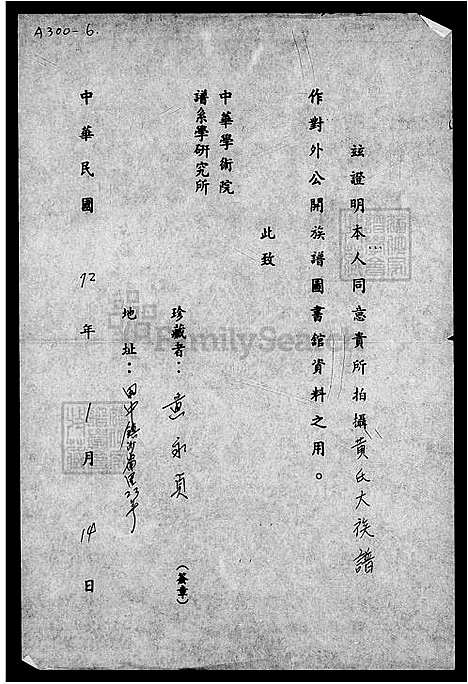 A300-6.
玆證明本人同意貴所拍攝黃氏大族譜
作對外公開族譜圖書館資料之用。
此致
中華學術院
譜系學研究所
珍藏者：黃永頁（簽章）
地址：田中鎮沙崙里23
中華民國72年1月14日
FamilySearch